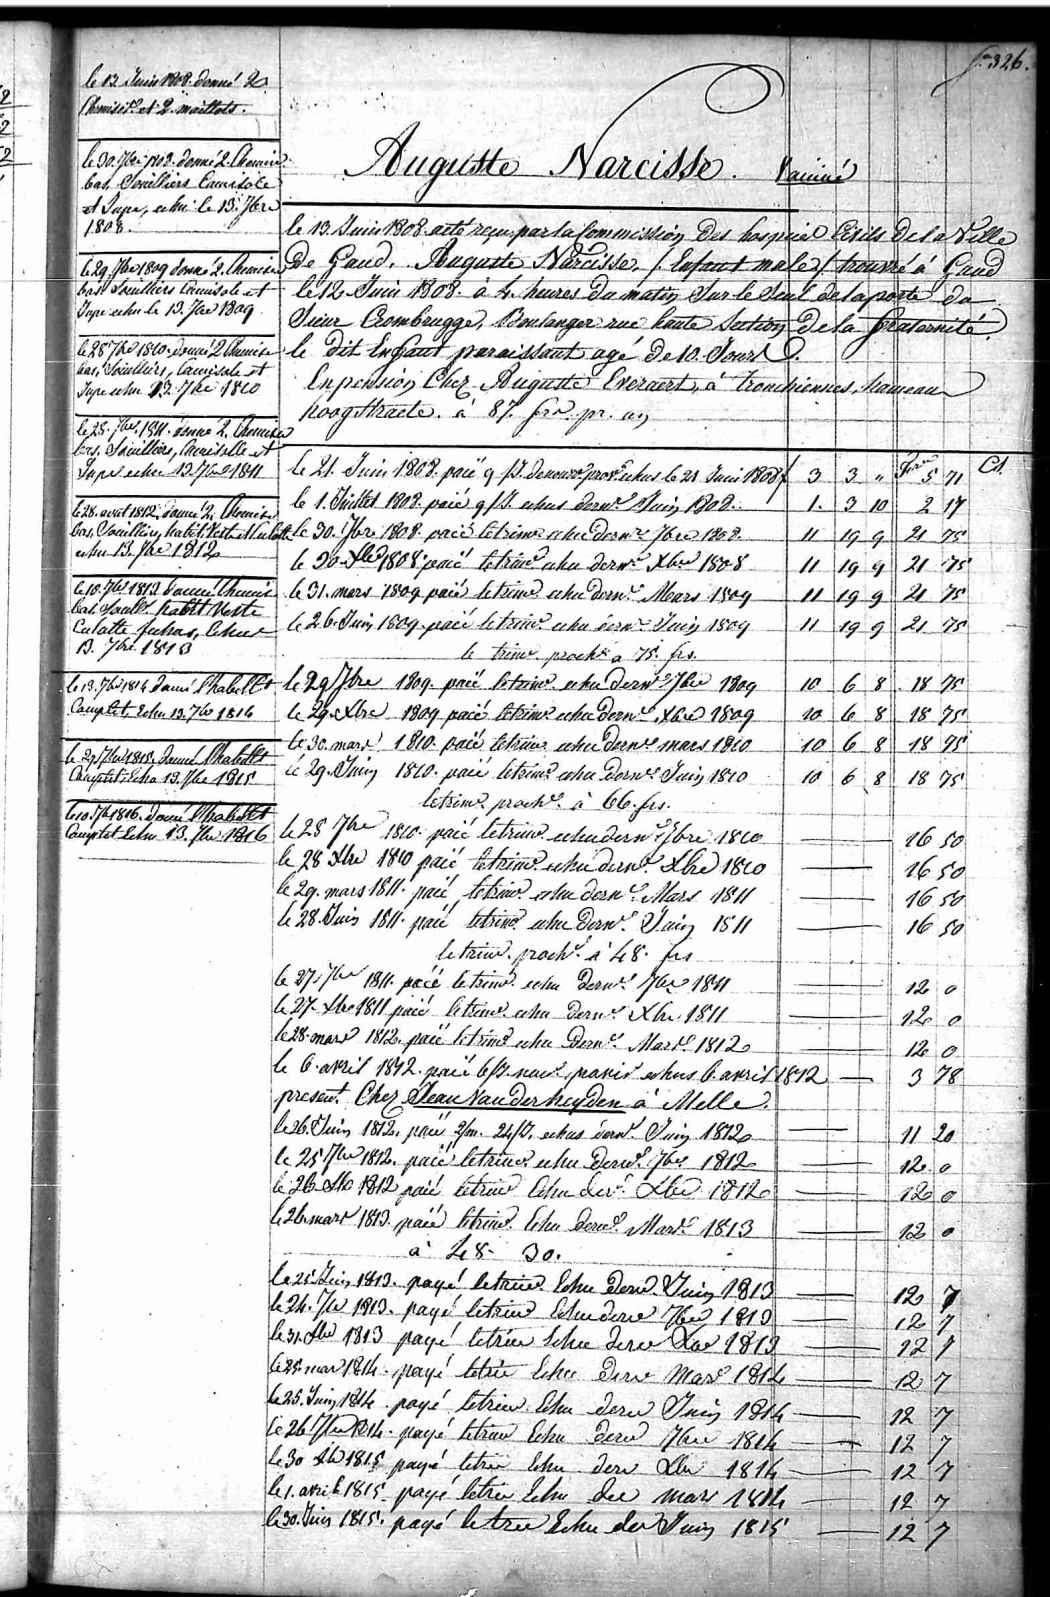 fo. 326.
Auguste Narcisse. Vacciné
le 13 Juin 1808. donné 2
Chemises et 2 maillots.
le 30. 7bre 1808. donné 2. Chemises
bas, Souilliers Camisole
et Jupe, echu le 13. 7bre
1808.
le 29. 7bre 1809 donné 2. Chemises
bas Souilliers Camisole et
Jupe echu le 13. 7bre 1809
le 28 7bre 1810. donné 2 Chemise
bas, Souilliers, Camisole et
Jupe echu 13. 7bre 1810
le 28. 7bre. 1811. donné 2. Chemises
bas. Souilliers, Camiselle et
Jupe echu 13. 7bre 1811
le 28. aout 1812. donné 2. Chemise
bas, Souilliers, habit Veste et Culotte
echu 13. 7bre 1812
le 10. 7bre 1813 donné Chemise
bas Soulrs habitt Veste
Culotte fichus, Echu
13. 7bre 1813
le 13. 7bre 1814 donné l'habillt
Complet, Echu 13. 7bre 1814
le 27 7bre 1815. donné l'habillt
Complet. Echu 13. 7bre 1815
le 10. 7bre 1816. donné l'habillt
Complet Echu 13. 7bre 1816
le 13. Juin 1808. a été reçu par la Commission des hospices Civils de la Ville
De Gand. Auguste Narcisse, / Enfant male / trouvé à Gand
le 12 Juin 1808. à 4. heures du matin Sur le Seuil de la porte du
Sieur Crombrugge, Boulanger rue haute Section de la fraternité.
le dit Enfant paraissant agé de 10. Jours.
En pension Chez Auguste Everaert, à tronchiennes, hameau
hoogstraete. à 87. frs. pr. an
le 21. Juin 1808. paié 9 / J. de nourr. prov. echus le 21 Juin 1808 3 3 " 5 71 Ct.
le 1. Juillet 1808. paié 9 / J. echus dernr. Juin 1808. 1. 3 10 2 17
le 30. 7bre 1808. paié le trimr. echu dernr. 7bre 1808. 11 19 9 21 75
le 30. Xbre 1808. paié le trimr. echu dernr. Xbre 1808 11 19 9 21 75
le 31. mars 1809 paié le trimr. echu dernr. Mars 1809 11 19 9 21 75
le 26. Juin 1809. paié le trimr. echu dernr. Juin 1809 11 19 9 21 75
le trimr. prochn. a 75. frs.
le 29 7bre 1809. paié le trimr. echu dernr. 7bre 1809 10 6 8 18 75
le 29. Xbre 1809 paié le trimr. echu dernr. Xbre 1809 10 6 8 18 75
le 30. mars 1810. paié le trimr. echu dernr. mars 1810 10 6 8 18 75
le 29. Juin 1810. paié le trimr. echu dernr. Juin 1810 10 6 8 18 75
le trimr. prochr. à 66. frs.
le 28 7bre 1810. paié le trimr. echu dernr. 7bre 1810 16 50
le 28 Xbre 1810 paié le trimr. echu dernr. Xbre 1810 16 50
le 29. mars 1811. paié le trimr. echu dernr. Mars 1811 16 50
le 28. Juin 1811. paié le trimr. echu dernr. Juin 1811 16 50
le trimr. prochr. à 48. frs
le 27. 7bre 1811. paié le trimr. echu dernr. 7bre 1811 12 0
le 27. Xbre 1811 paié le trimr. echu dernr. Xbre 1811 12 0
le 28. mars 1812. paié le trimr. echu dernr. Mars. 1812 12 0
le 6. avril 1812. paié 6 / J. echus 6 avril 1812 3 78
present. Chez Jean Vanderheyden à Melle.
le 26. Juin 1812. paié 2/m. 24/J. echus dernr. Juin 1812 11 20
le 25 7bre 1812. paié le trimr. echu dernr. 7bre 1812 12 0
le 26 Xbre 1812 paié le trimr Echu derr. Xbre 1812 12 0
le 26. mars 1813. paié le trimr. Echu dernr. Mars. 1813 12 0
à 48. 30.
le 25 Juin 1813. payé le trim Echu derr Juin 1813 12 7
le 24. 7bre 1813. payé le trim Echu derr 7bre 1813 12 7
le 31. Xbre 1813 payé le trim Echu derr Xbre 1813 12 7
le 25. mars 1814. payé le trim Echu derr Mars 1814 12 7
le 25. Juin 1814. payé le trim Echu derr Juin 1814 12 7
le 26 7bre 1814. payé le trim Echu derr 7bre 1814 12 7
le 30 Xbre 1815 payé le trim Echu derr Xbre 1814 12 7
le 1. avril 1815. payé le trim Echu der mars 1814 12 7
le 30. Juin 1815. payé le trim Echu der Juin 1815 12 7